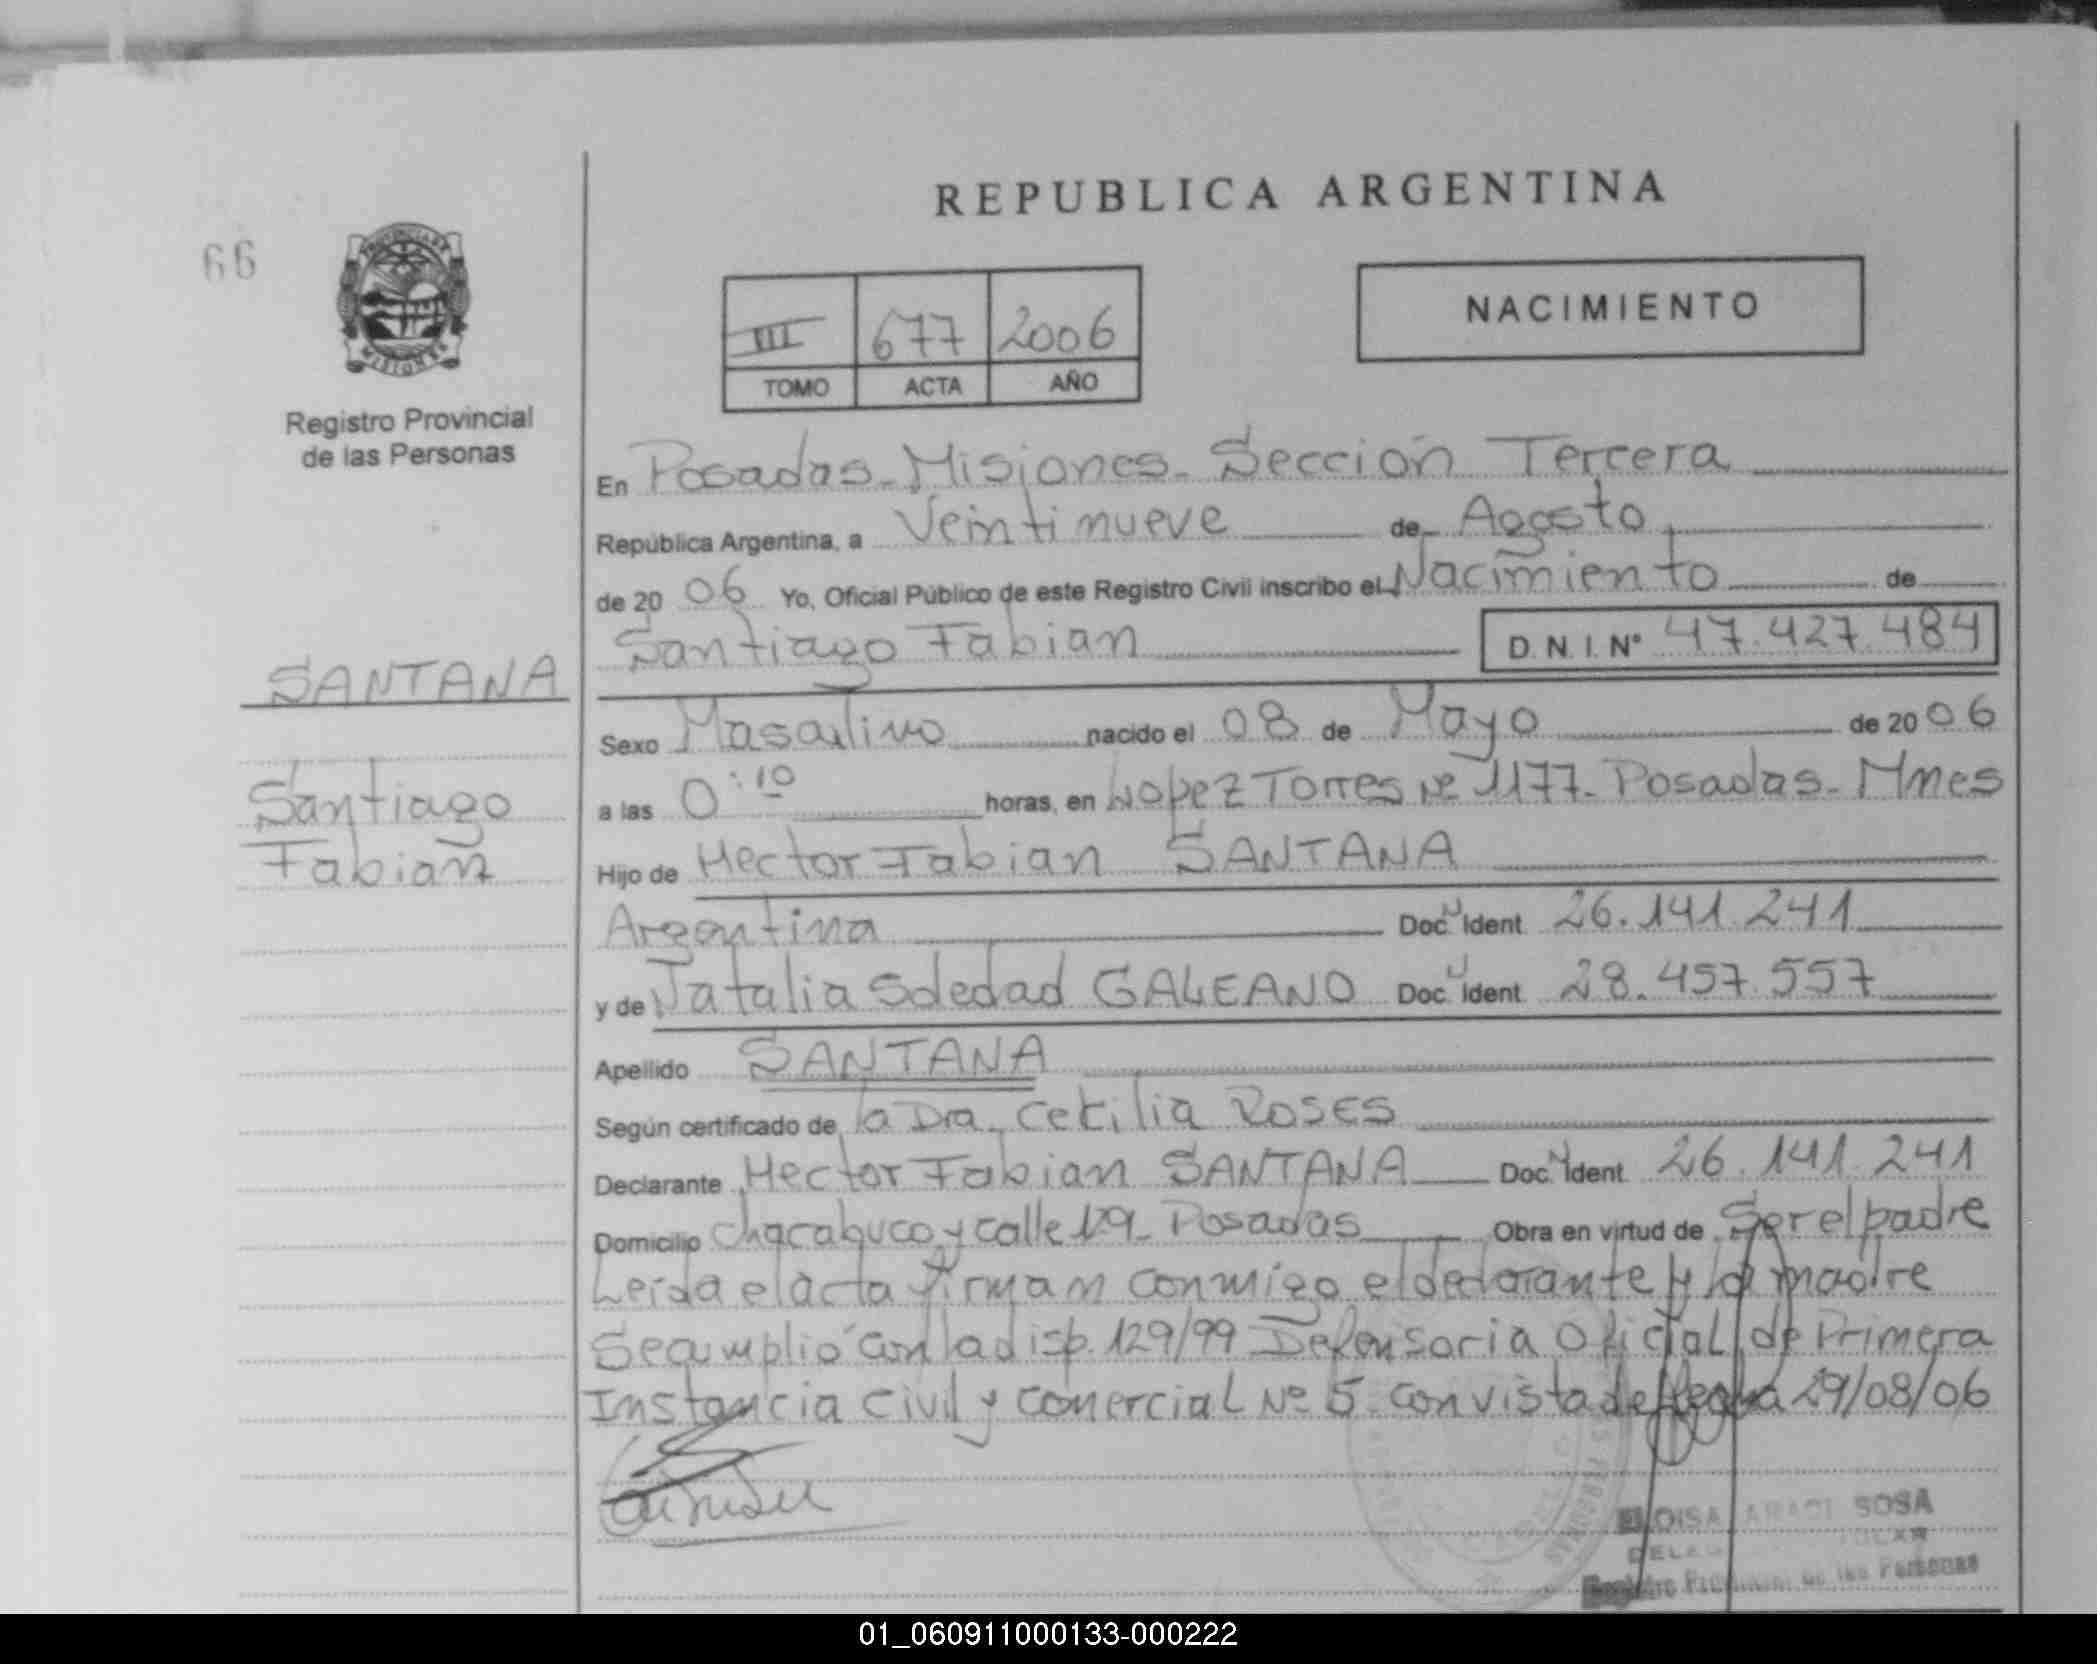 REPUBLICA ARGENTINA
66
MISIONES
Registro Provincial
de las Personas
III 677 2006
TOMO ACTA AÑO
NACIMIENTO
En Posadas-Misiones-Sección Tercera
República Argentina, a Veintinueve de Agosto
de 20 06 Yo, Oficial Público de este Registro Civil inscribo el Nacimiento de
Santiago Fabian D.N.I. Nº 47.427.484
SANTANA
Santiago
Fabian
Sexo Masculino nacido el 08 de Mayo de 20 06
a las 0:10 horas, en Lopez Torres Nº 1177-Posadas-Mnes
Hijo de Hector Fabian SANTANA
Argentina Doc. Ident. 26.141.241
y de Natalia Soledad GALEANO Doc. Ident. 28.457.557
Apellido SANTANA
Según certificado de la Dra. Cecilia Roses
Declarante Hector Fabian SANTANA Doc. Ident. 26.141.241
Domicilio Chacabuco y calle 129-Posadas Obra en virtud de Ser el padre
Leida el acta firman conmigo el declarante y la madre
Se cumplió con la disp. 129/99 Defensoria Oficial de Primera
Instancia Civil y Comercial Nº 5. con vista de fecha 29/08/06
ELOISA ARACI SOSA
Registro Provincial de las Personas
01_060911000133-000222